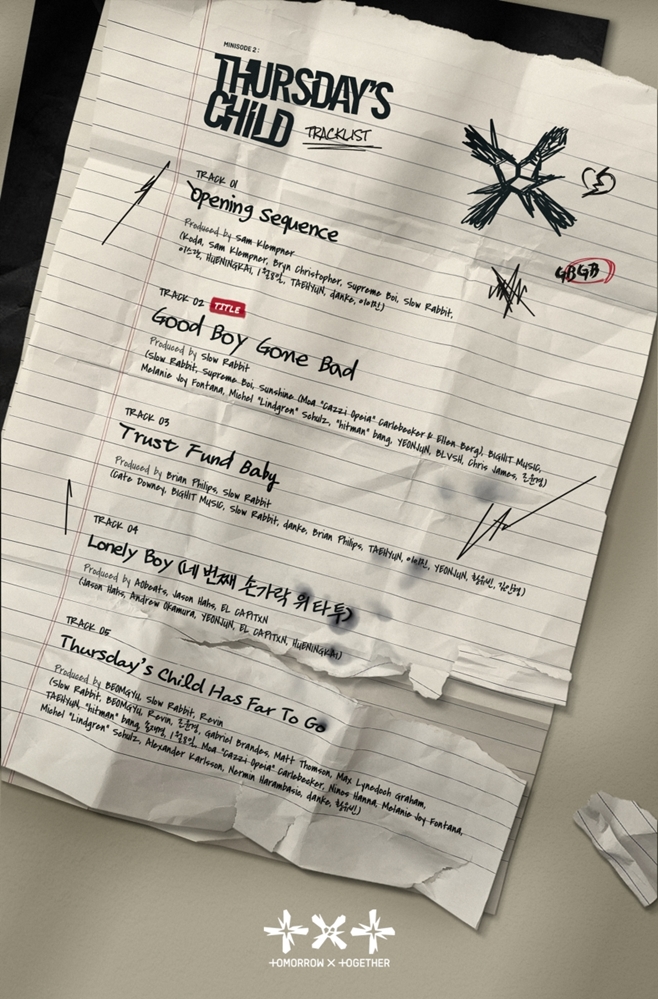 MINISODE 2 :
THURSDAY'S
CHILD
TRACKLIST
TRACK 01
Opening Sequence
Produced by Sam Klempner
(Koda, Sam Klempner, Bryn Christopher, Supreme Boi, Slow Rabbit,
이스란, HUENINGKAI, 1월8일, TAEHYUN, danke, 이이진)
GBGB
TRACK 02 TITLE
Good Boy Gone Bad
Produced by Slow Rabbit
(Slow Rabbit, Supreme Boi, Sunshine (Moa "Cazzi Opeia" Carlebecker & Ellen Berg), BIGHIT MUSIC,
Melanie Joy Fontana, Michel "Lindgren" Schulz, "hitman" bang, YEONJUN, BLVSH, Chris James, 조윤경)
TRACK 03
Trust Fund Baby
Produced by Brian Philips, Slow Rabbit
(Cate Downey, BIGHIT MUSIC, Slow Rabbit, danke, Brian Philips, TAEHYUN, 이이진, YEONJUN, 황유빈, 김인형)
TRACK 04
Lonely Boy (네 번째 손가락 위 타투)
Produced by AObeats, Jason Hahs, EL CAPITXN
(Jason Hahs, Andrew Okamura, YEONJUN, EL CAPITXN, HUENINGKAI)
TRACK 05
Thursday's Child Has Far To Go
Produced by BEOMGYU, Slow Rabbit, Revin
(Slow Rabbit, BEOMGYU, Revin, 조윤경, Gabriel Brandes, Matt Thomson, Max Lynedoch Graham,
TAEHYUN, "hitman" bang, 1월8일, Moa "Cazzi Opeia" Carlebecker, Ninos Hanna, Melanie Joy Fontana,
Michel "Lindgren" Schulz, Alexander Karlsson, Nermin Harambasic, danke, 황유빈)
TOMORROW X TOGETHER